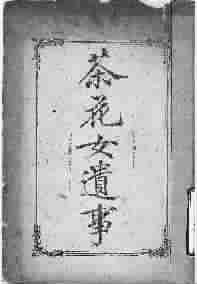 茶花女遺事